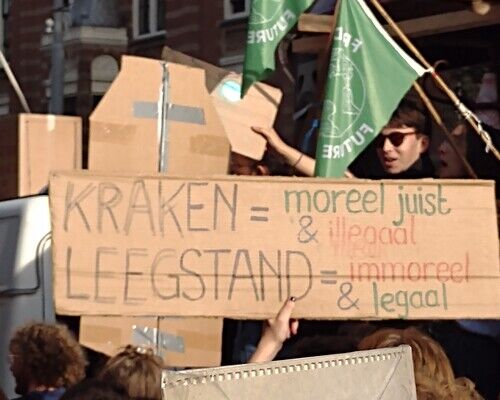 FUTURE
FOR
FUTURE
KRAKEN = moreel juist
& illegaal
LEEGSTAND = immoreel
& legaal